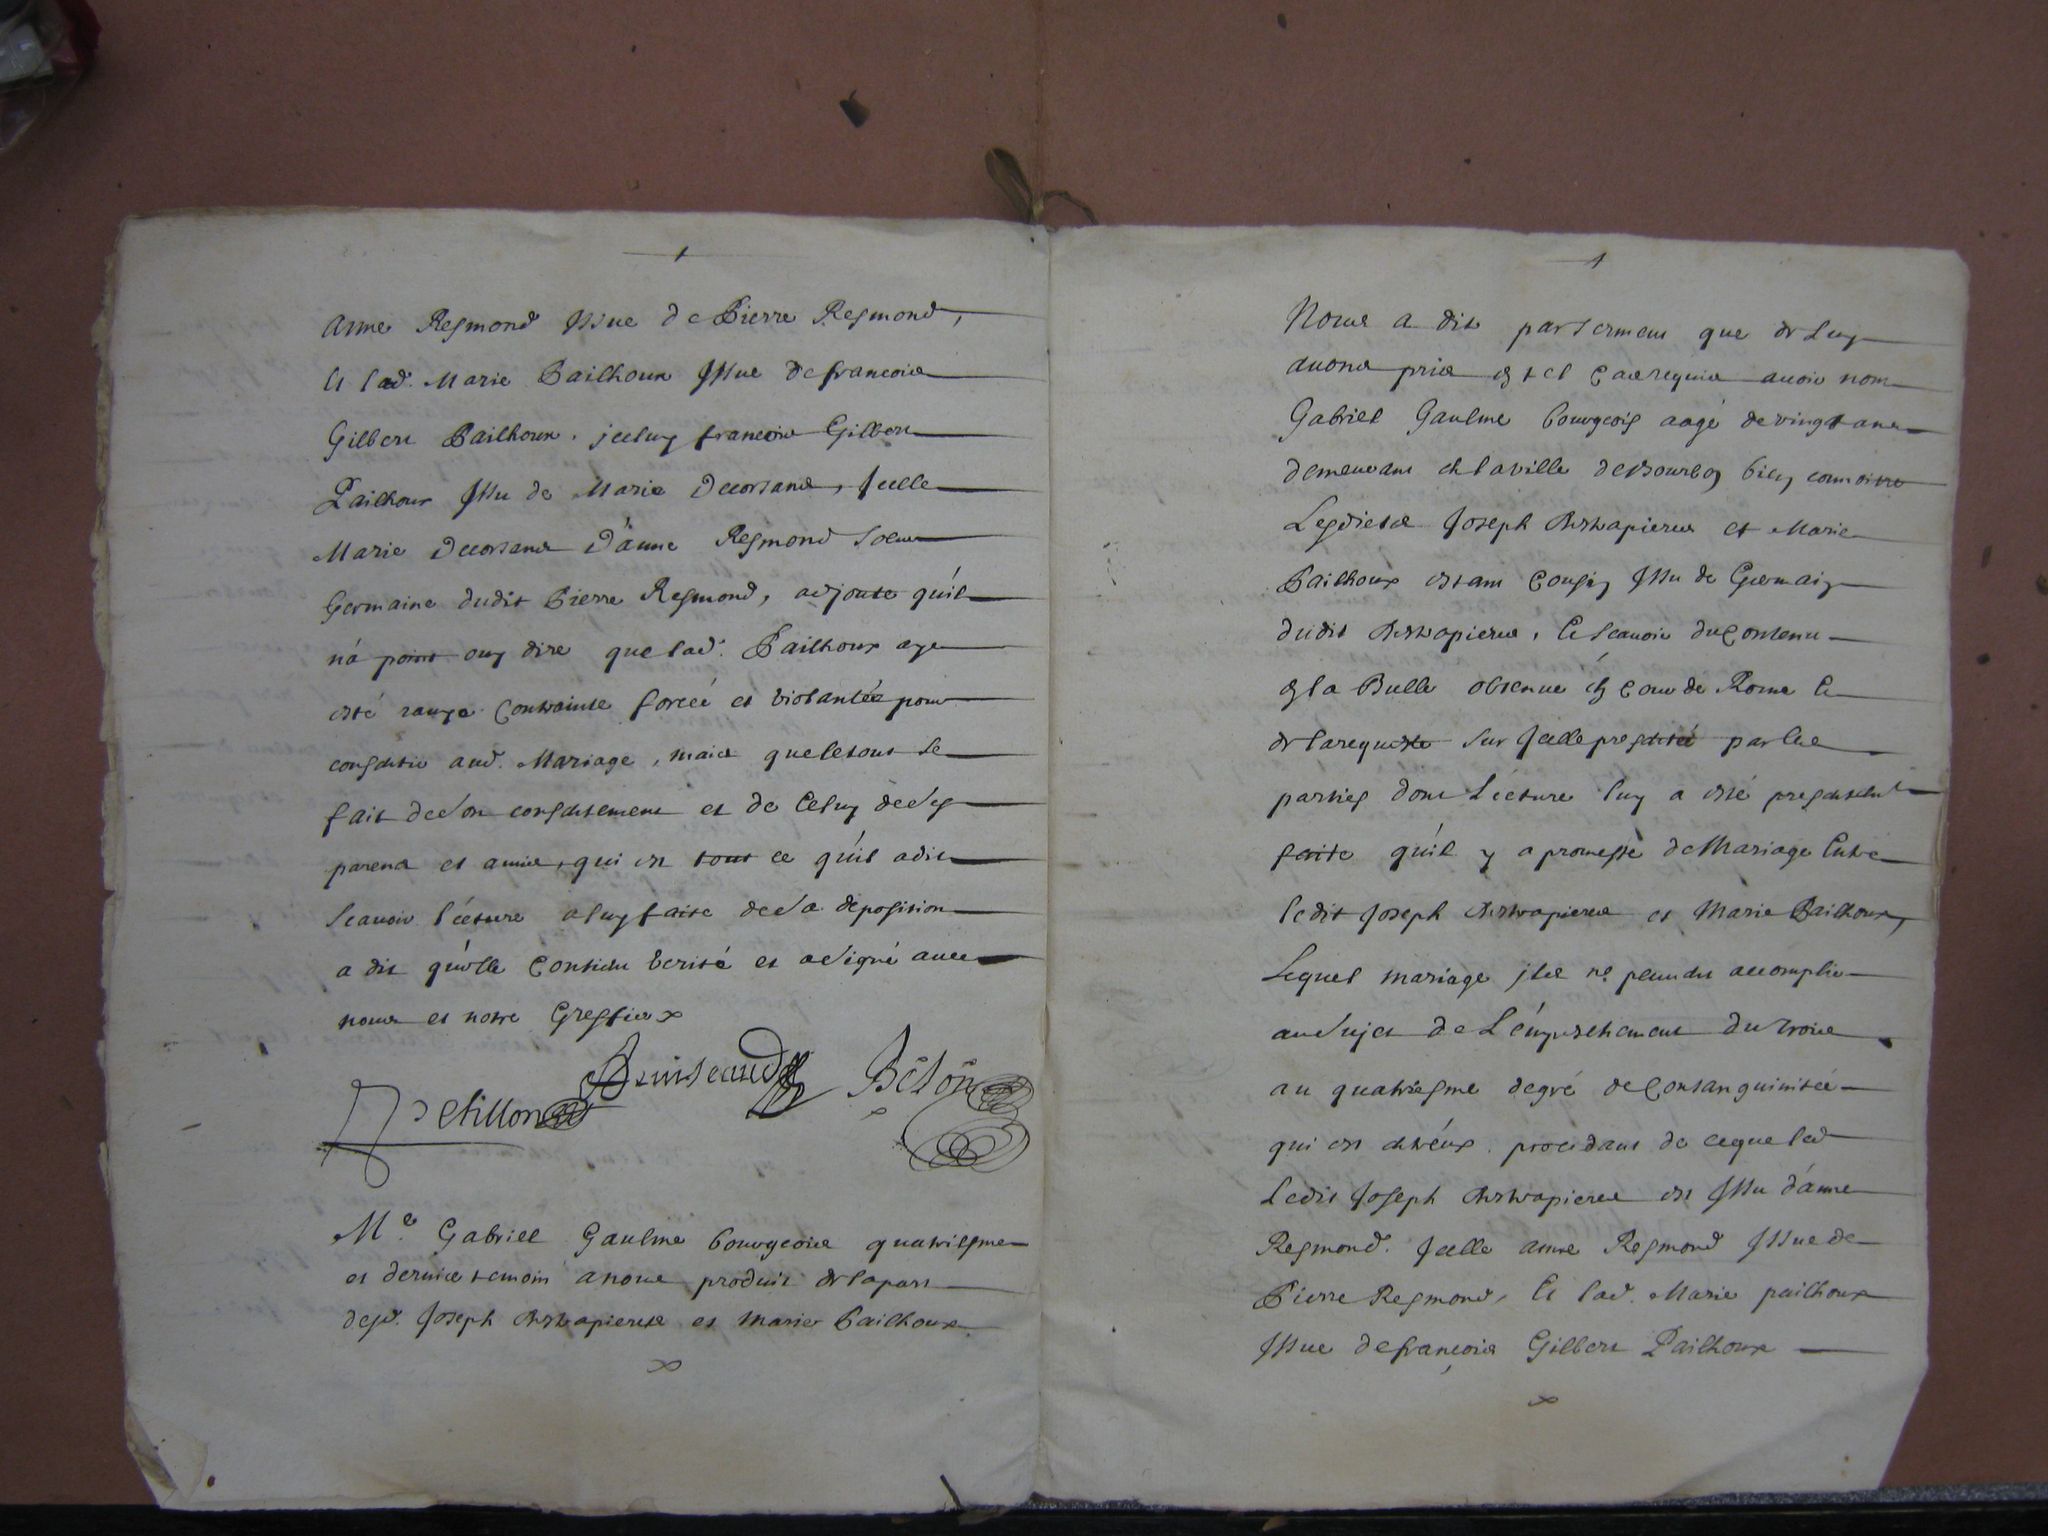 Anne Resmond Issue de Pierre Resmond,
et lad. Marie Pailhoux Issue de francois
Gilbert Pailhoux. jceluy francois Gilbert
Pailhoux Issu de Marie Decorsans, Jcelle
Marie Decorsans D'anne Resmond soeur
Germaine dudit Pierre Resmond, adjoute qu'il
n'a point ouy dire que lad. Pailhoux aye
esté contrainte forcéé et violantéé pour
consentir aud. Mariage, mais que le tout se
fait de son consentement et de Celuy de ses
parens et amis, qui est tout ce qu'il a dit
scauoir lécture a luy faite de sa deposition
a dit qu'elle Contient verité et a signé auec
nous et notre Greffier
Petillon Béton
Me. Gabriel Gaulme bourgeois quatriesme
et dernier temoin a nous produit de la part
desd. Joseph et Marie Pailhoux
Nous a dit par serment que de luy
auons pris et Cas requis auoir nom
Gabriel Gaulme bourgeois aagé de vingt ans
demeurant en la ville de Bourbon bien connoitre
Lesdicts Joseph et Marie
Pailhoux estant Cousin Issu de Germain
dudit et scauoir du Contenu
en la Bulle obtenue en Cour de Rome et
de la requeste sur Jcelle presentéé par les
parties dont Lécture luy a esté presentement
faite qu'il y a promesse de Mariage Entre
ledit Joseph et Marie Pailhoux,
Lequel mariage jls ne peuuent accomplir
au sujet de L'émpeschement du trois
au quatriesme degré de Consanguinitéé
qui est entréux. procedant de ce que led
Ledit Joseph est Issu d'anne
Resmond. Jcelle anne Resmond Issue de
Pierre Resmond, et lad. Marie pailhoux
Issue de francois Gilbert Pailhoux